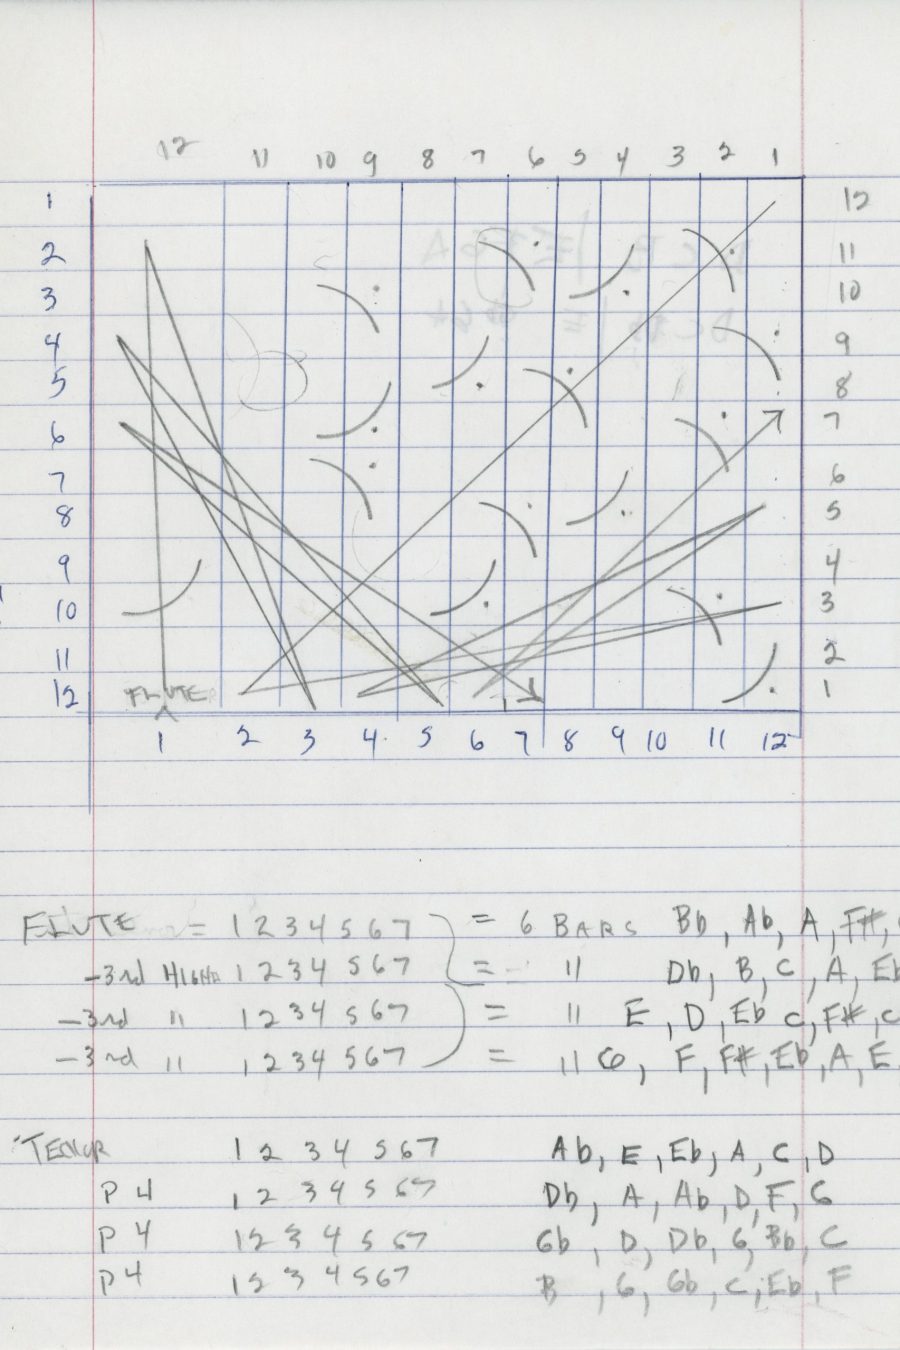 12 11 10 9 8 7 6 5 4 3 2 1
1 12
2 11
3 10
4 9
5 8
6 7
7 6
8 5
9 4
10 3
11 2
12 FLUTE 1
1 2 3 4. 5 6 7 8 9 10 11 12
FLUTE = 1 2 3 4 5 6 7 = 6 BARS Bb, Ab, A, F#,
-3rd HIGHER 1 2 3 4 5 6 7 = 11 Db, B, C, A, Eb
-3rd 11 1 2 3 4 5 6 7 = 11 E, D, Eb C, F#, C
-3rd 11 1 2 3 4 5 6 7 = 11 G, F, F#, Eb, A, E
TENOR 1 2 3 4 5 6 7 Ab, E, Eb, A, C, D
P 4 1 2 3 4 5 6 7 Db, A, Ab, D, F, G
P 4 1 2 3 4 5 6 7 Gb, D, Db, G, Bb, C
P 4 1 2 3 4 5 6 7 B, G, Gb, C, Eb, F